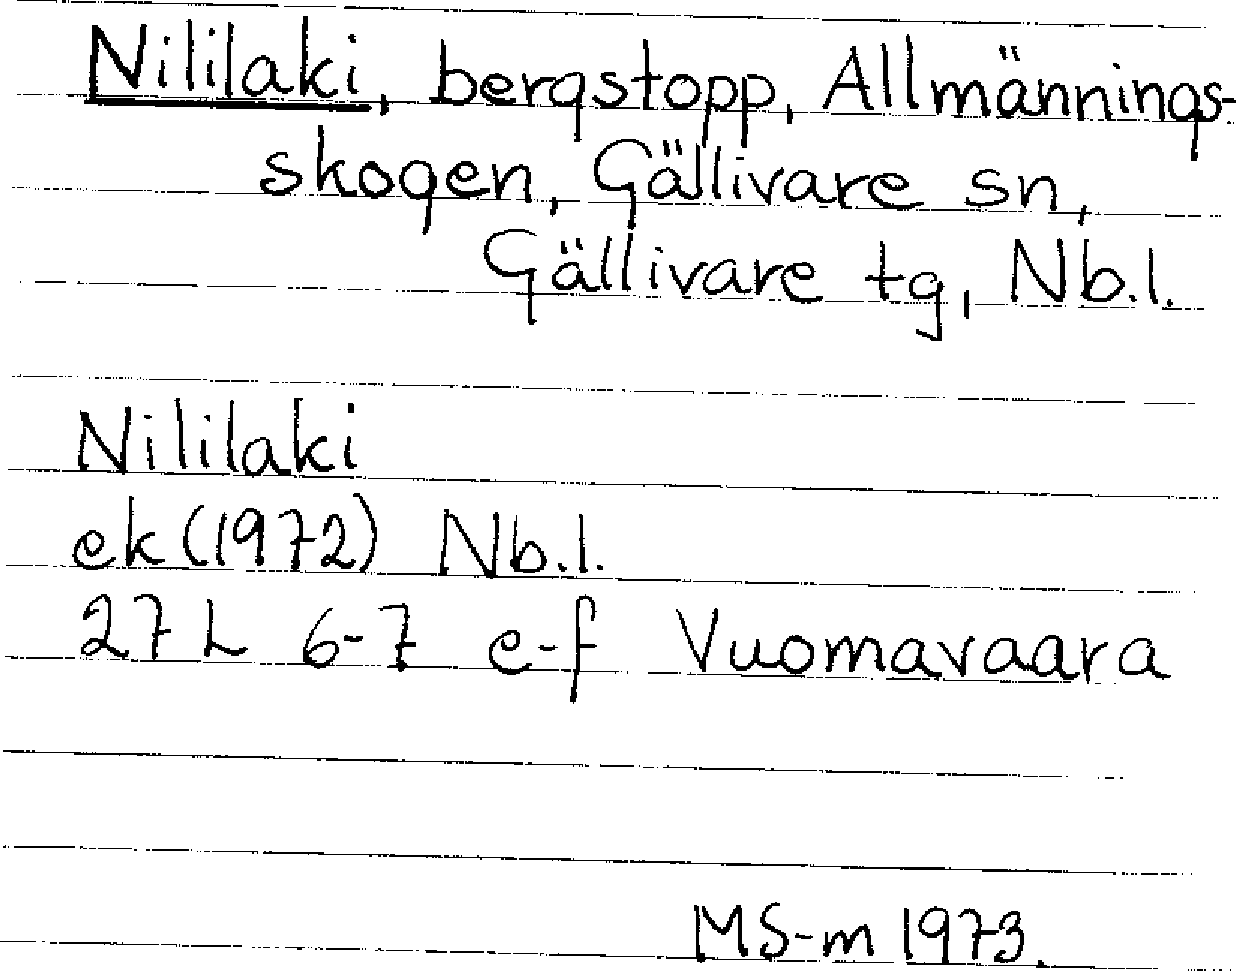 Nililaki, bergstopp, Allmännings-
skogen, Gällivare sn,
Gällivare tg, Nb.l.
Nililaki
ek (1972) Nb.l.
27 L 6-7 e-f Vuomavaara
MS-m 1973.